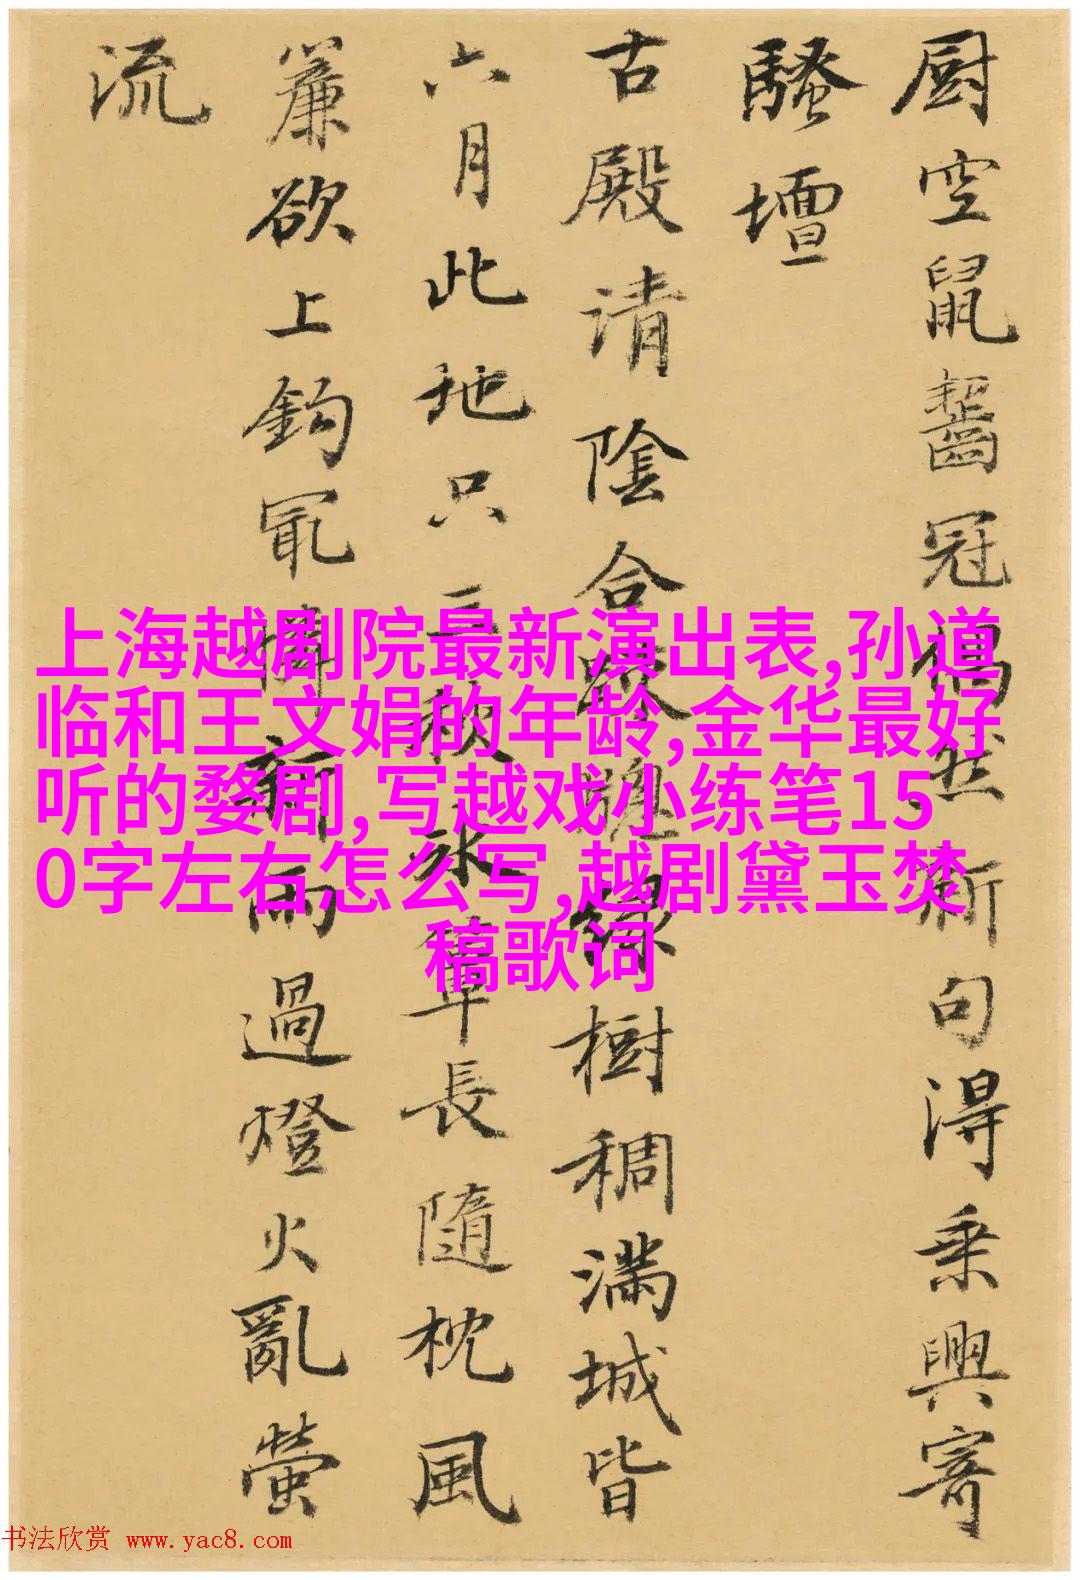 厨空鼠齧冠偶然新句得乘興寄
騷壇
古殿清陰合踈籬緑樹稠滿城皆
六月此地只三秋冰簟長隨枕風
簾欲上鈎冣憐新雨過燈火亂螢
流
上海越剧院最新演出表,孙道
临和王文娟的年龄,金华最好
听的婺剧,写越戏小练笔15
0字左右怎么写,越剧黛玉焚
稿歌词
书法欣赏 www.yac8.com